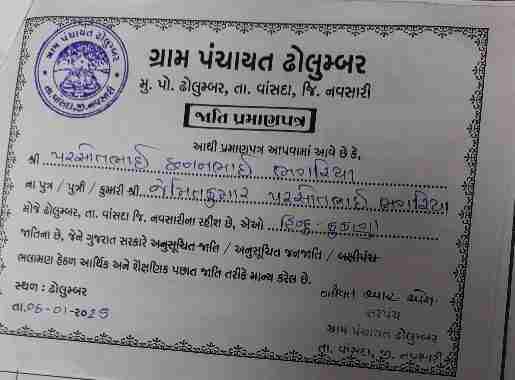 ગ્રામ પંચાયત ઢોલુમ્બર
તા. વાંસદા, જી. નવસારી
ગ્રામ પંચાયત ઢોલુમ્બર
મુ. પો. ઢોલુમ્બર, તા. વાંસદા, જિ. નવસારી
જાતિ પ્રમાણપત્ર
આથી પ્રમાણપત્ર આપવામાં આવે છે કે,
શ્રી પરસોતભાઈ છનનભાઈ ભગરિયા
ના પુત્ર / પુત્રી / કુમારી શ્રી જૈનિતકુમાર પરસોતભાઈ ભગરિયા
મોજે ઢોલુમ્બર, તા. વાંસદા જિ. નવસારીના રહીશ છે, એઓ હિન્દુ - કુકણા
જાતિના છે, જેને ગુજરાત સરકારે અનુસૂચિત જાતિ / અનુસૂચિત જનજાતિ / બક્ષીપંચ
ભલામણ હેઠળ આર્થિક અને શૈક્ષણિક પછાત જાતિ તરીકે માન્ય કરેલ છે.
સ્થળ : ઢોલુમ્બર
તા.06-01-2025
સરપંચ
ગ્રામ પંચાયત ઢોલુમ્બર
તા. વાંસદા, જી. નવસારી